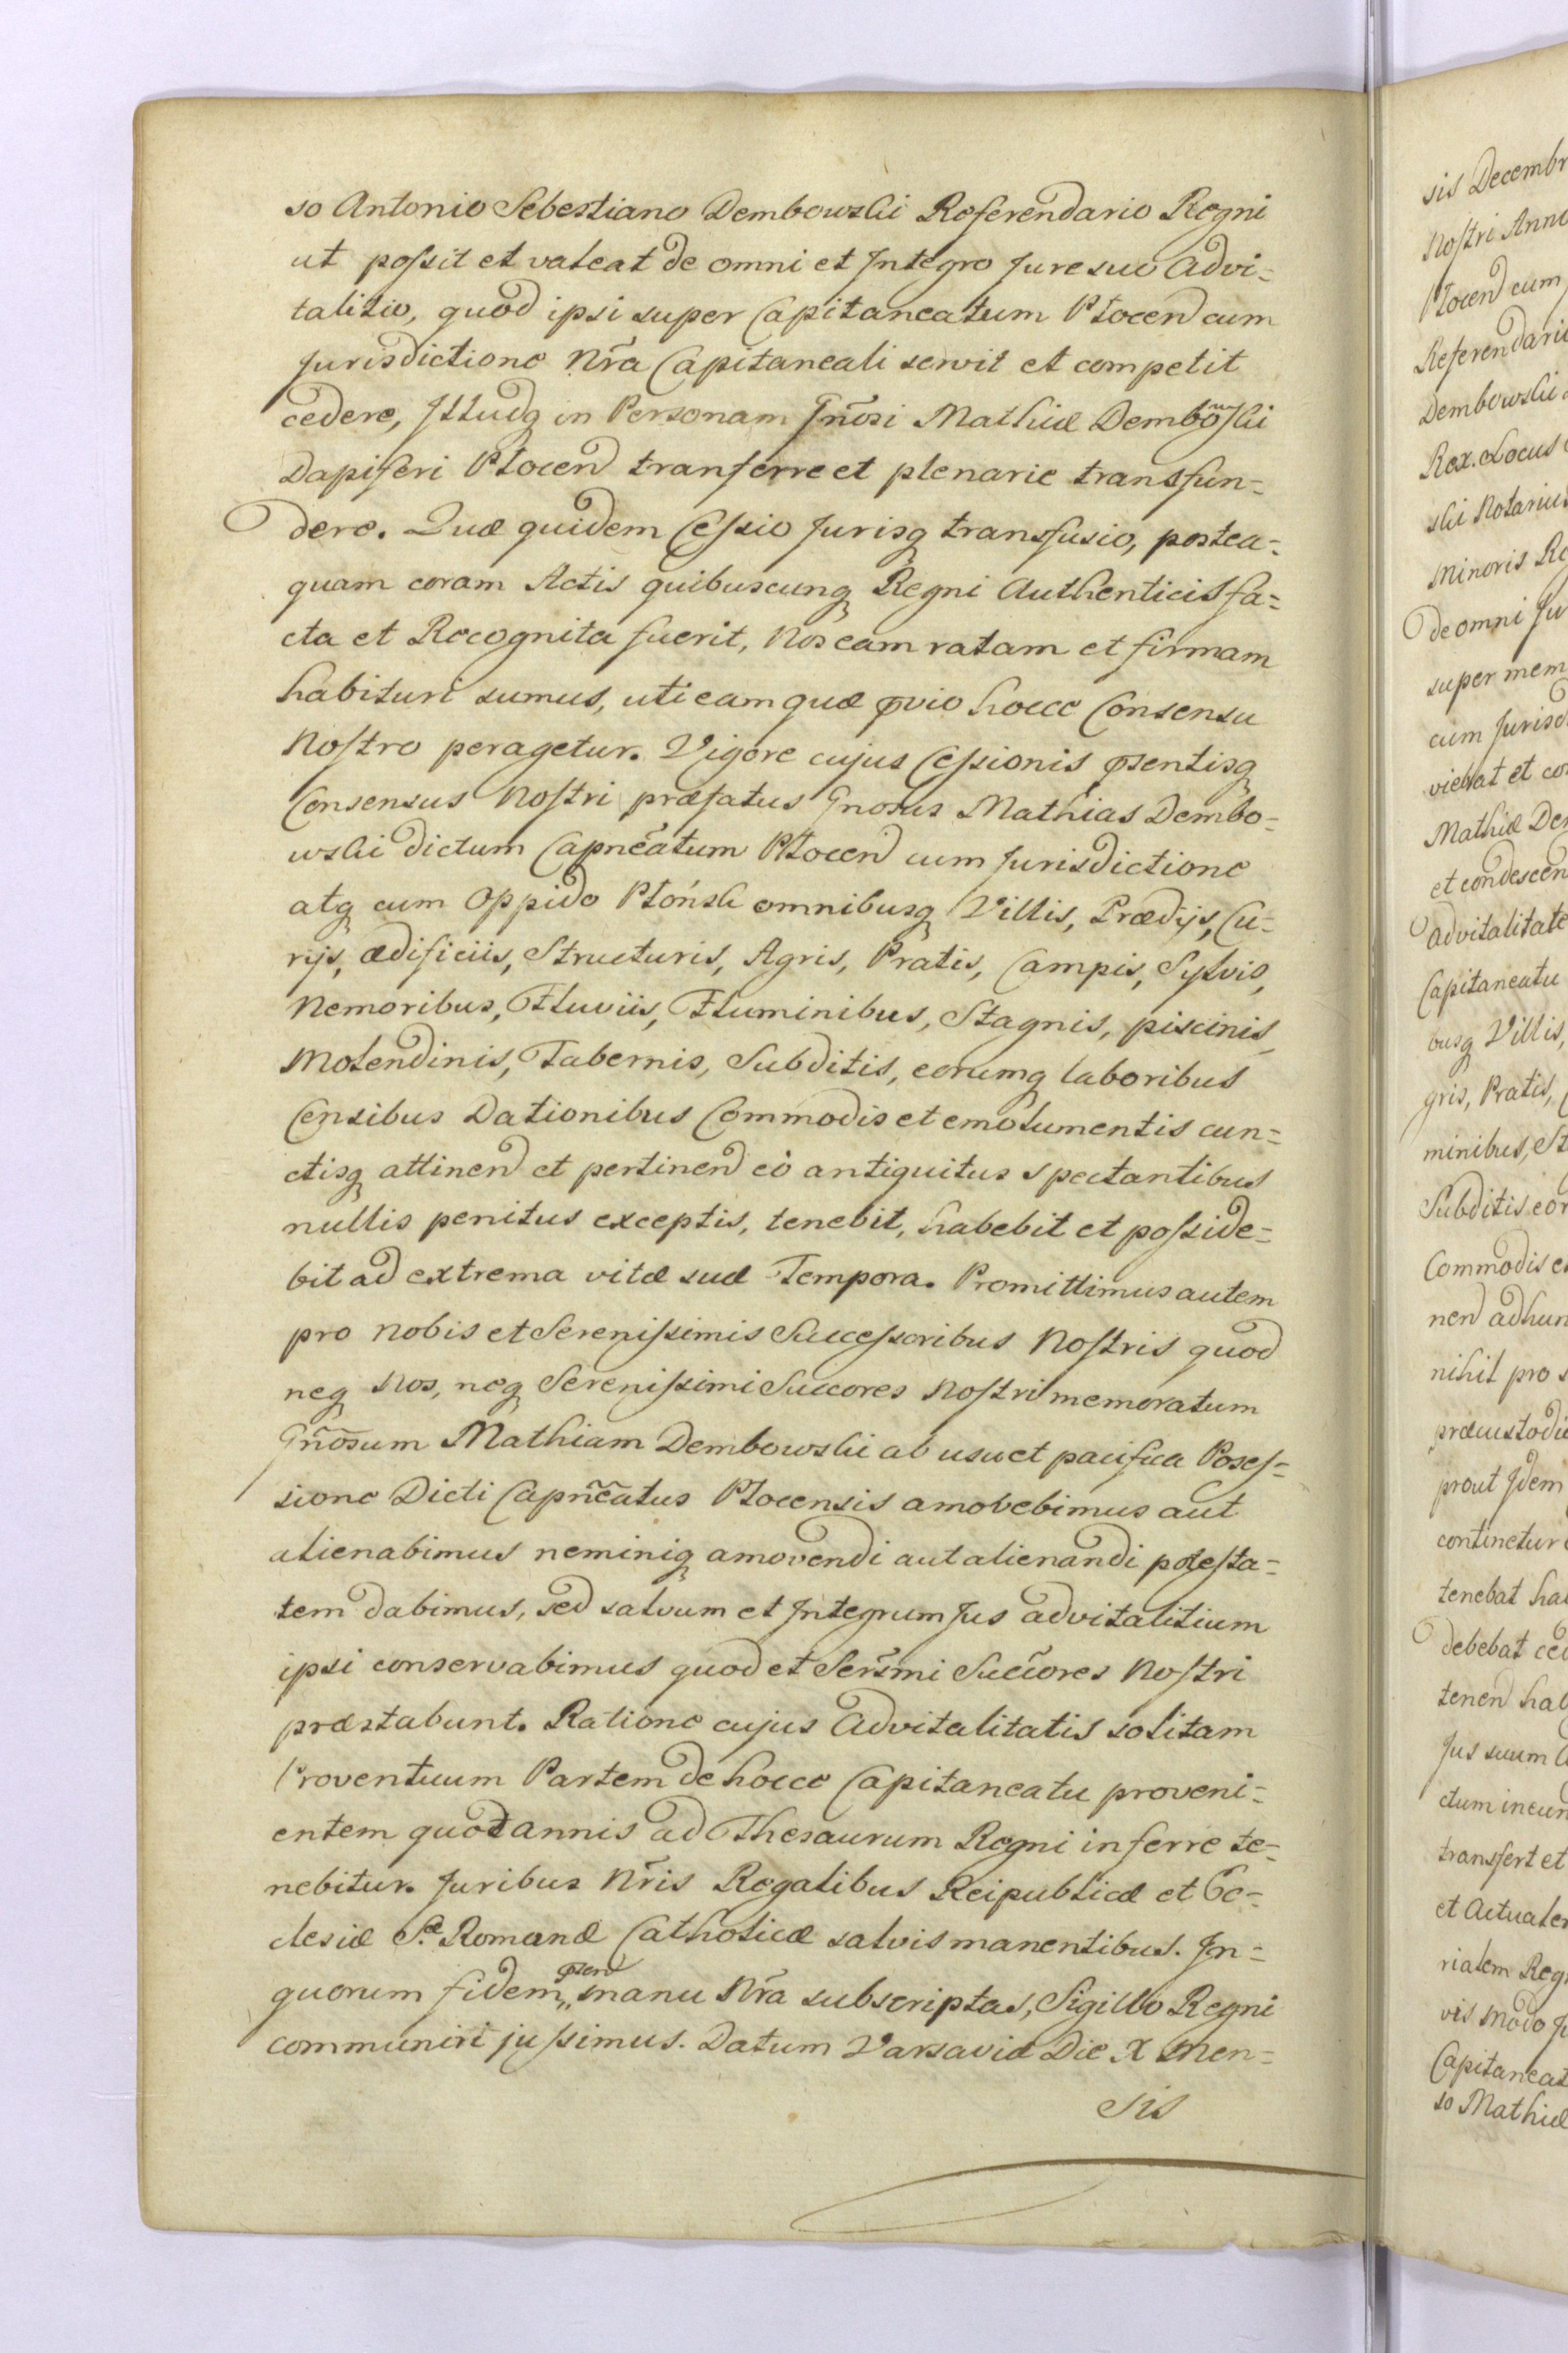 so Antonio Sebestiano Dembowski Referendario Regni
ut possit et valeat de omni et Integro Jure suo Advi=
talitio, quod ipsi super Capitaneatum Płocen cum
Jurisdictione Nr̃a Capitaneali servit et competit
cedere, Illudq in Personam Gñosi Mathiæ Dembowski
Dapiferi Płocen tranferre et plenarie transfun=
dere. Quæ quidem Cessio Jurisq transfusio, postea=
quam coram Actis quibuscunq Regni Authenticis fa=
cta et Recognita fuerit, Nos eam ratam et firmam
habituri sumus, uti eam quæ pvio hocce Consensu
Nostro peragetur. Vigore cujus Cessionis psentisq
Consensus Nostri præfatus Gnosus Mathias Dembo=
wski dictum Capneãtum Płocen cum Jurisdictione
atq cum Oppido Płońsk omnibusq Villis, Prædijs, Cu=
rijs, ædificiis, Structuris, Agris, Pratis, Campis, Sylvis,
Nemoribus, Fluviis, Fluminibus, Stagnis, piscinis,
Molendinis, Tabernis, Subditis, eorumq laboribus
Censibus Dationibus Commodis et emolumentis cun=
ctisq attinen et pertinen eò antiquitus spectantibus
nullis penitus exceptis, tenebit, habebit et posside=
bit ad extrema vitæ suæ Tempora. Promittimus autem
pro Nobis et Serenissimis Successoribus Nostris quod
neq Nos, neq Serenissimi Succores Nostri memoratum
Gñosum Mathiam Dembowski ab usu et pacifica Poses=
sione Dicti Capñeatus Płocensis amovebimus aut
alienabimus neminiq amovendi aut alienandi potesta=
tem dabimus, sed salvum et Integrum Jus advitalitium
ipsi conservabimus quod et Ser̃mi Succ̃ores Nostri
præstabunt. Ratione cujus Advitalitatis solitam
Proventuum Partem de hocce Capitaneatu proveni=
entem quotannis ad Thesaurum Regni inferre te=
nebitur. Juribus Nr̃is Regalibus Reipublicæ et Ec=
clesiæ S.æ Romanæ Catholicæ salvis manentibus. In=
quorum fidem psen manu Nr̃a subscriptas, Sigillo Regni
communiri jussimus. Datum Varsaviæ Die X Men=
sis
sis Decembr
Nostri Anno
Płocen cum
Referendario
Dembowski
Rex. Locus
ski Notarius
Minoris Re
de omni Ju
super mem
cum Jurisd
viebat et co
Mathiæ De
et condescen
Advitalitate
Capitaneatu
busq Villis,
gris, Pratis,
minibus, St
Subditis eor
Commodis e
nen adhun
nihil pro s
præcustodi
prout Idem
continetur
tenebat ha
debebat ce
tenen hab
Jus suum
ctum in eun
transfert et
et Actualem
rialem Reg
vis modo
Capitaneat
so Mathiæ